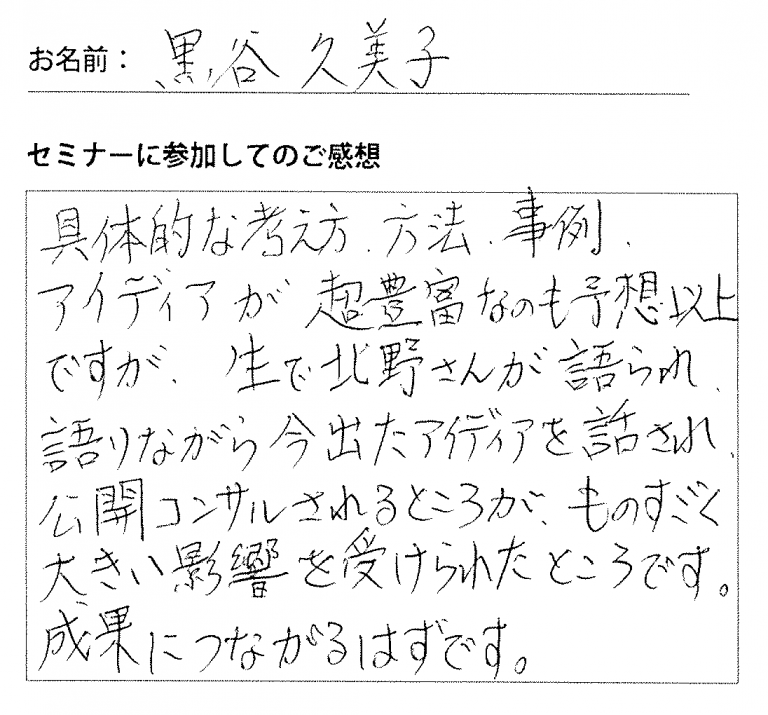 お名前： 黒谷 久美子
セミナーに参加してのご感想
具体的な考え方、方法、事例、
アイディアが超豊富なのも予想以上
ですが、生で北野さんが語られ、
語りながら今出たアイディアを話され、
公開コンサルされるところが、ものすごく
大きい影響を受けられたところです。
成果につながるはずです。